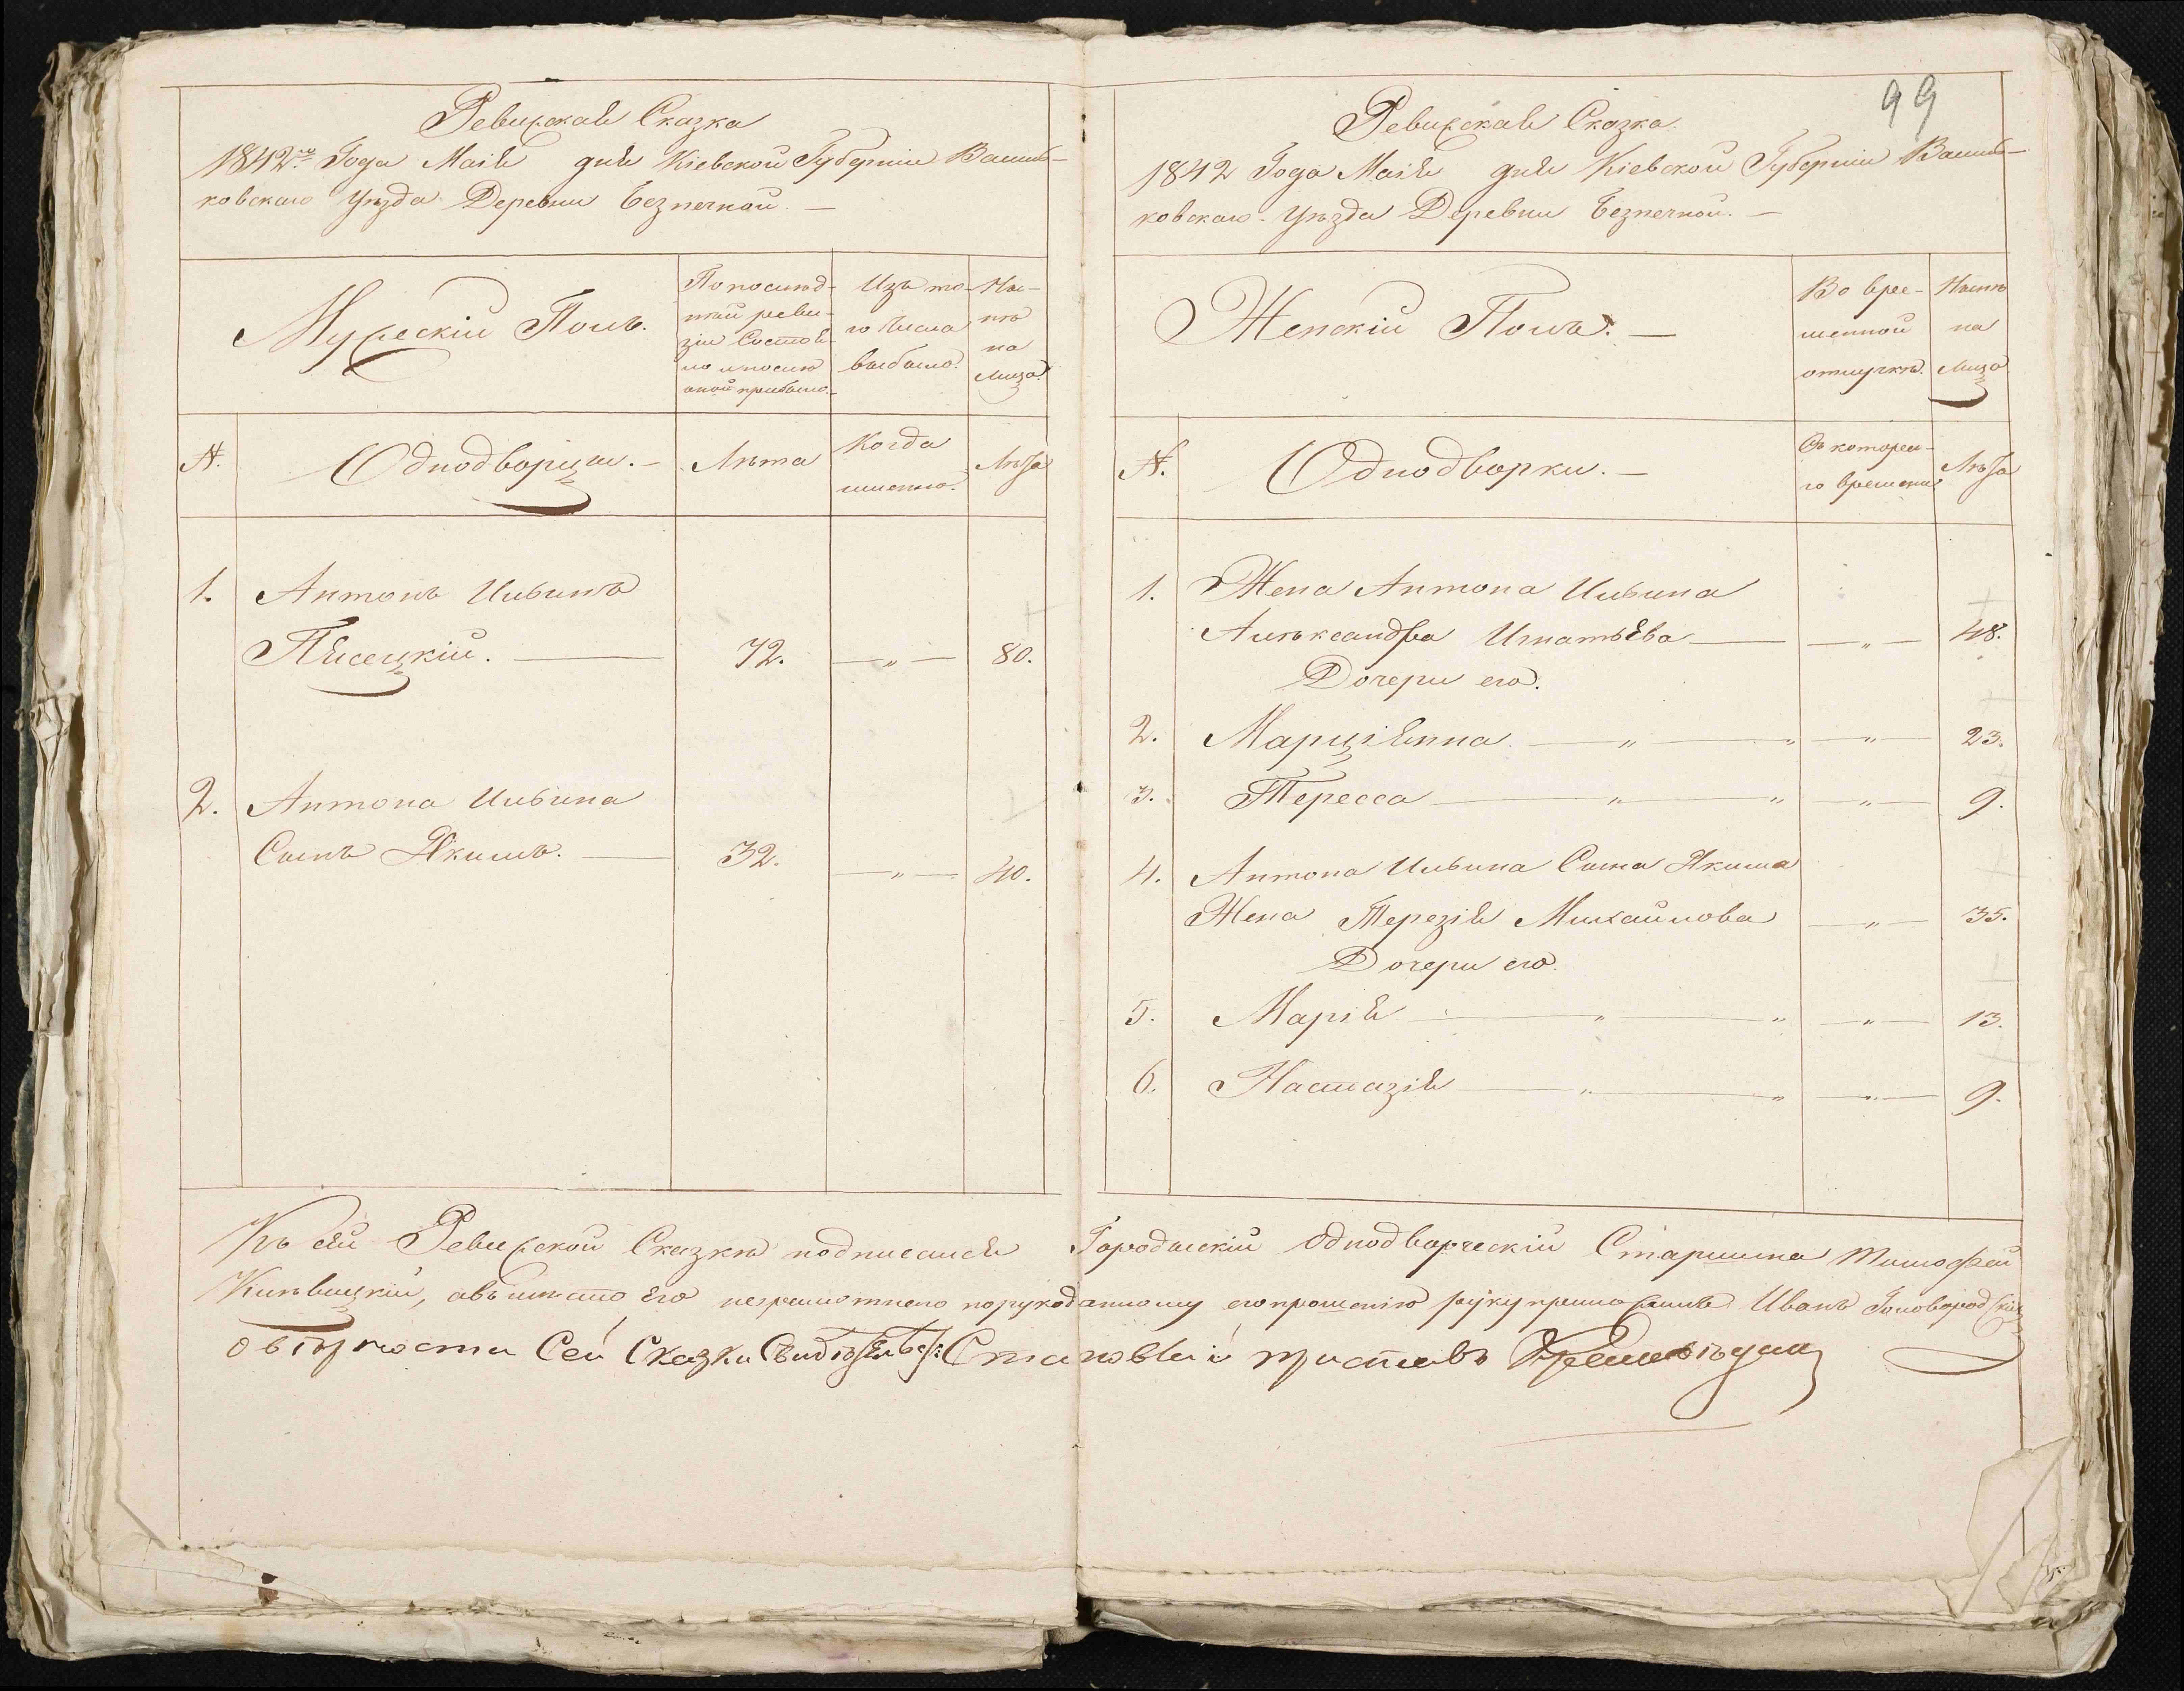 Ревижская Сказка
1842го Года Маія дня Кіевской Губерніи Василь-
ковскаго Уѣзда Деревни Безпечной. —
Мужескій Полъ.
По послѣд-
ней реви-
зіи Состоя-
ло и послѣ
оной прибыло.
Изъ то-
го Числа
выбыло.
Ны-
нѣ
на
лицо.
№.
Однодворцы. —
Лѣта
Когда
именно.
Лѣта
1. Антонъ Ильинъ
Пѣсецкій. — 72. — „ — 80.
2. Антона Ильина
Сынъ Якимъ. — 32. — „ — 40.
99
Ревижская Сказка.
1842 Года Маія дня Кіевской Губерніи Василь-
ковскаго Уѣзда Деревни Безпечной. —
Женскій Полъ. —
Во вре-
менной
отлучкѣ.
Нынѣ
на
Лицо
№.
Однодворки. —
Съ котора-
го времени
Лѣта
1. Жена Антона Ильина
Алѣксандра Игнатьева — — „ — 48.
Дочери его.
2. Марціянна. — „ — „ — „ — 23.
3. Тересса — „ — „ — „ — 9.
4. Антона Ильина Сына Якима
Жена Терезія Михайлова — „ — 35.
Дочери его.
5. Марія — „ — „ — „ — 13.
6. Настазія — „ — „ — „ — 9.
Къ сей Ревижской Сказкѣ подписался Городискій однодворческій Старшина Тимофей
авъ мѣсто его неграмотнаго порукоданному его прошенію руку приложилъ Иванъ
овѣрности Сей Сказки Становый приставъ